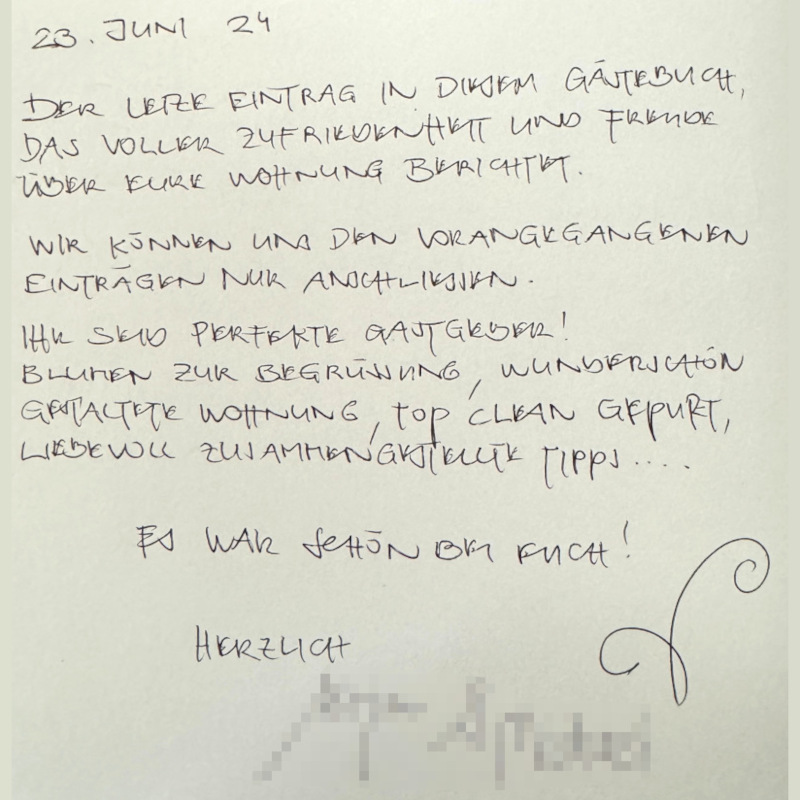 23. JUNI 24
DER LETZE EINTRAG IN DIESEM GÄSTEBUCH,
DAS VOLLER ZUFRIEDENHEIT UND FREUDE
ÜBER EURE WOHNUNG BERICHTET.
WIR KÖNNEN UNS DEN VORANGEGANGENEN
EINTRÄGEN NUR ANSCHLIESSEN.
IHR SEID PERFEKTE GASTGEBER!
BLUMEN ZUR BEGRÜSSUNG, WUNDERSCHÖN
GESTALTETE WOHNUNG, TOP CLEAN GEPUTZT,
LIEBEVOLL ZUSAMMENGESTELLTE TIPPS....
ES WAR SCHÖN BEI EUCH!
HERZLICH